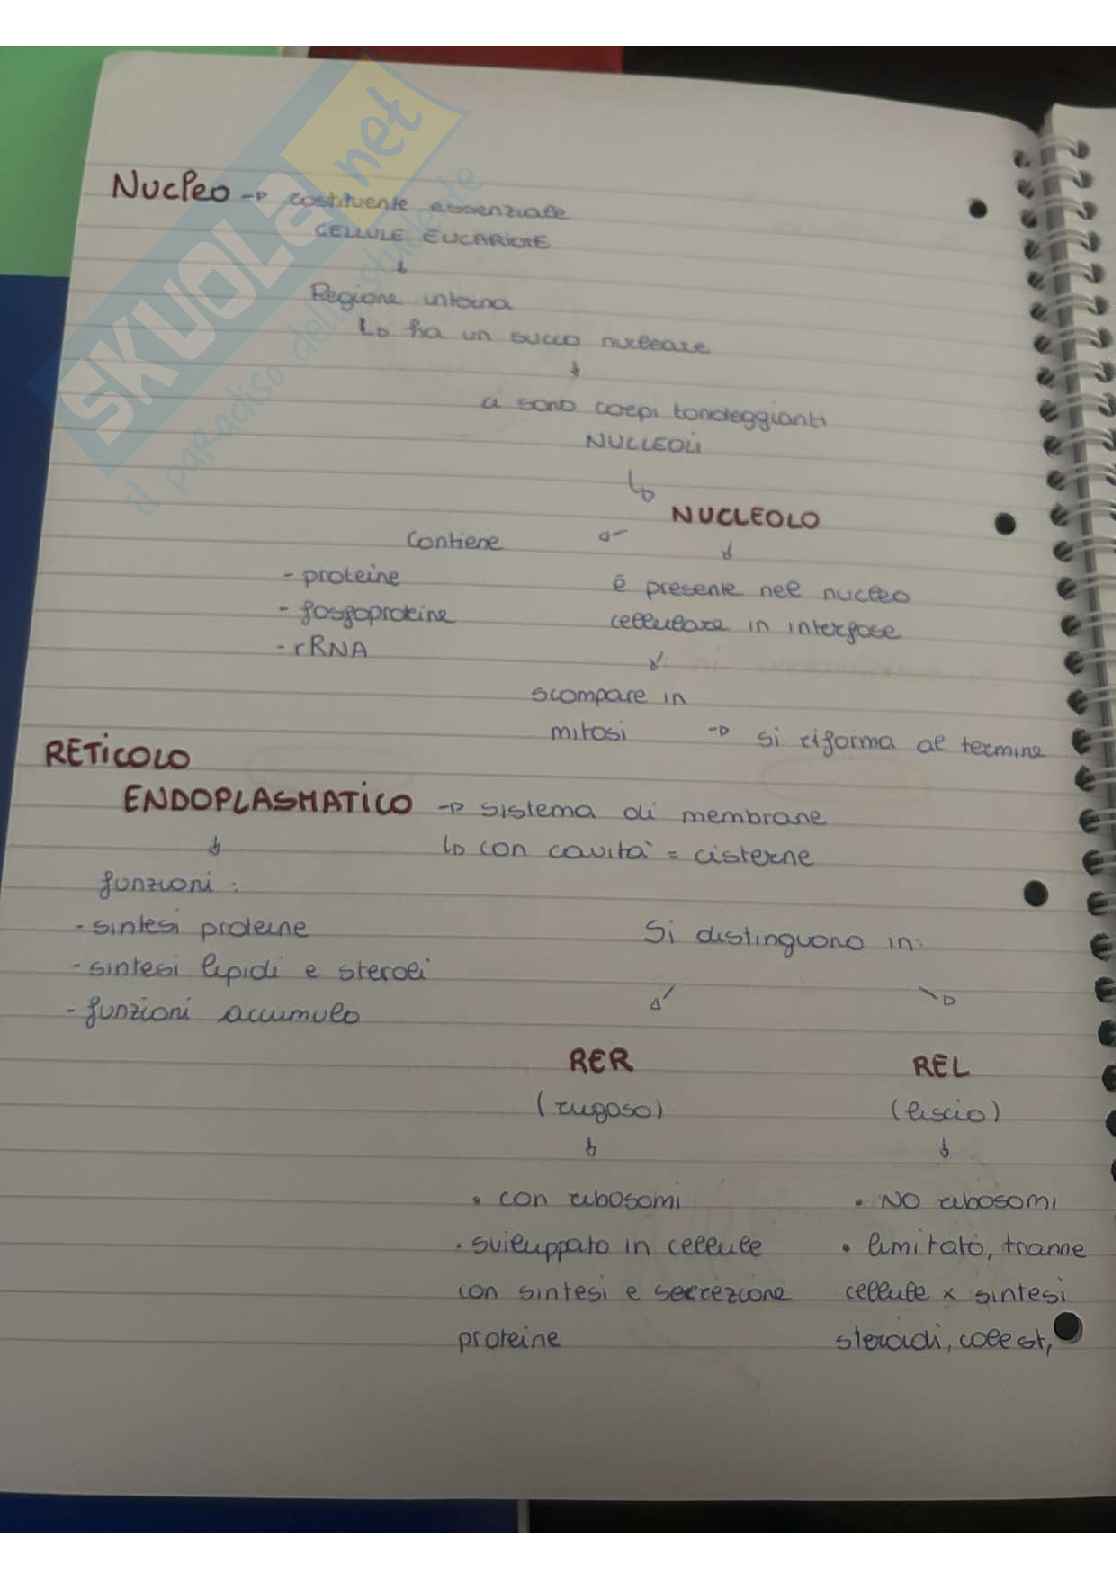 SKUOLA.net
il paradiso dello studente
Nucleo → costituente essenziale
CELLULE EUCARIOTE
↓
Regione interna
↳ ha un succo nucleare
↓
ci sono corpi tondeggianti
NUCLEOLI
↳
NUCLEOLO
Contiene
- proteine
- fosfoproteine
- rRNA
è presente nel nucleo
cellulare in interfase
scompare in
mitosi → si riforma al termine
RETICOLO
ENDOPLASMATICO → sistema di membrane
↳ con cavità = cisterne
funzioni :
- sintesi proteine
- sintesi lipidi e steroli
- funzioni accumulo
Si distinguono in:
RER REL
(rugoso) (liscio)
• con ribosomi
• sviluppato in cellule
con sintesi e secrezione
proteine
• NO ribosomi
• limitato, tranne
cellule x sintesi
steroidi, colest,